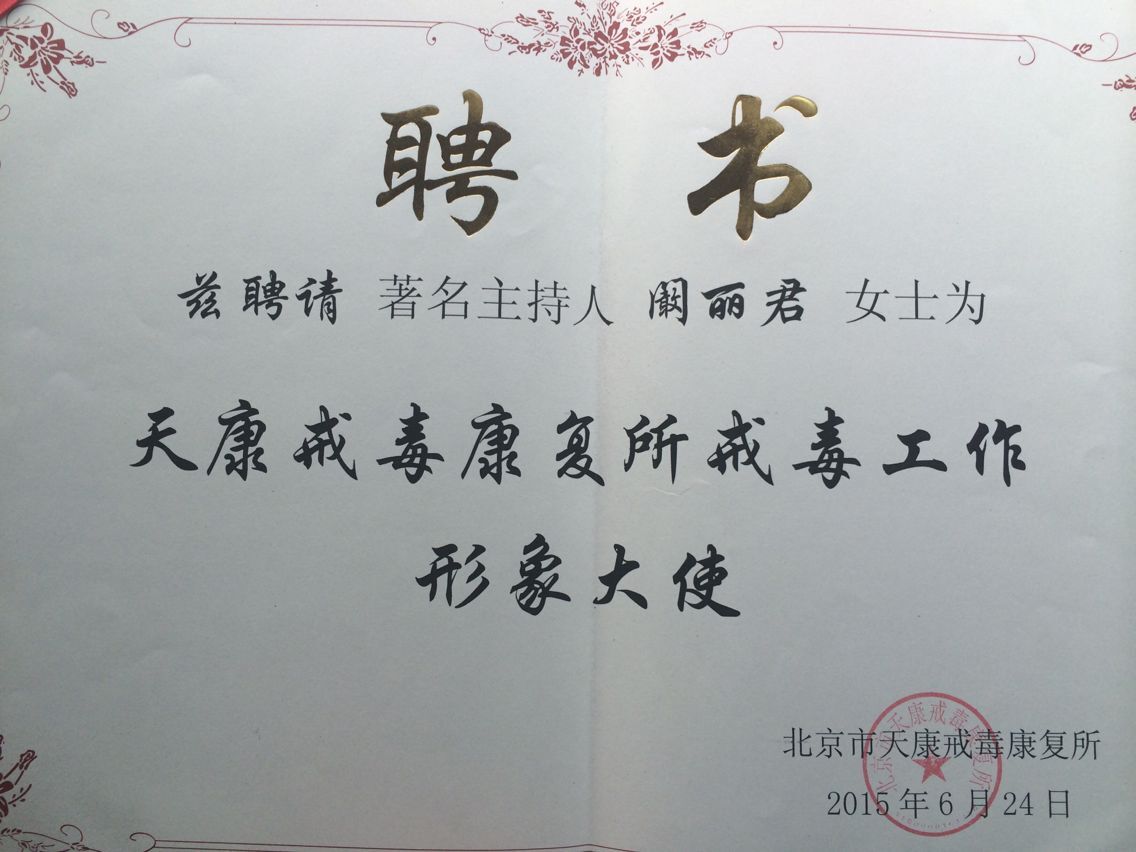 聘书
兹聘请 著名主持人 阚丽君 女士为
天康戒毒康复所戒毒工作
形象大使
北京市天康戒毒康复所
2015年6月24日
北京市天康戒毒康复所